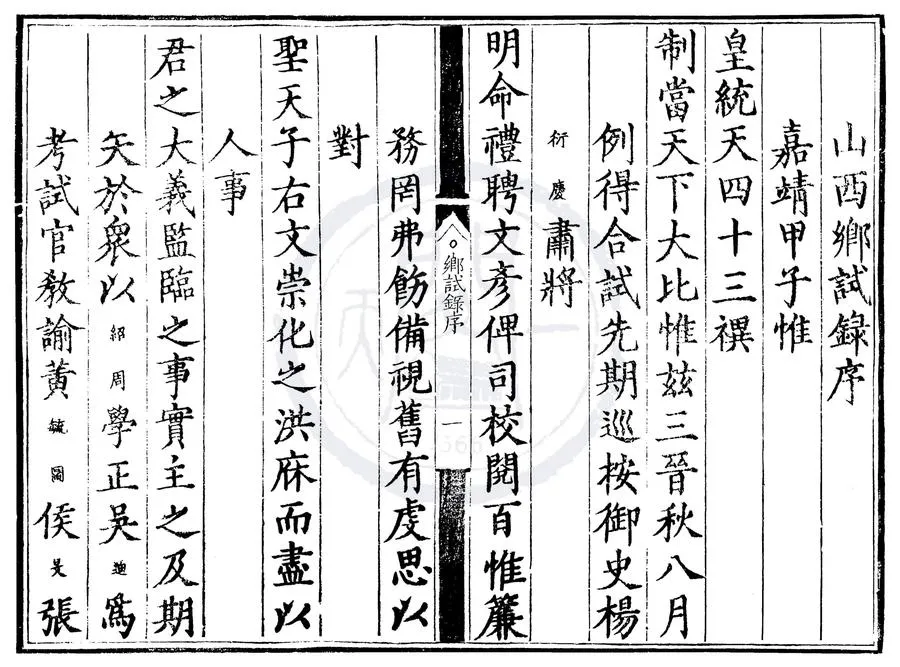 山西鄉試錄序
嘉靖甲子惟
皇統天四十三禩
制當天下大比惟茲三晉秋八月
例得合試先期巡按御史楊
衍慶肅將
明命禮聘文彥俾司校閱百惟簾
鄉試錄序 一
務罔弗飭備視舊有虔思以
對
聖天子右文崇化之洪庥而盡以
人事
君之大義監臨之事實主之及期
矢於衆以紹周學正吳迪爲
考試官教諭黃毓圖侯旻張